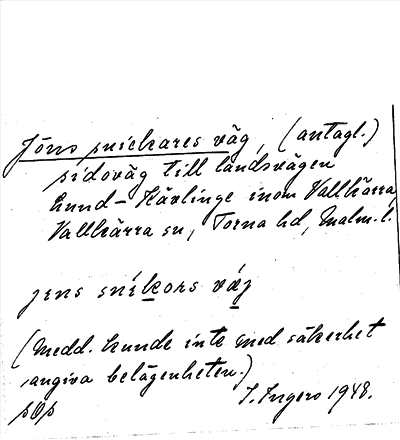 Jöns snickares väg, (antagl.)
sidoväg till landsvägen
Lund - Kävlinge inom Vallkärra,
Vallkärra sn, Torna hd, Malm. l.
jens snikors väg
(Medd. kunde inte med säkerhet
angiva belägenheten.)
I. Ingers 1948.